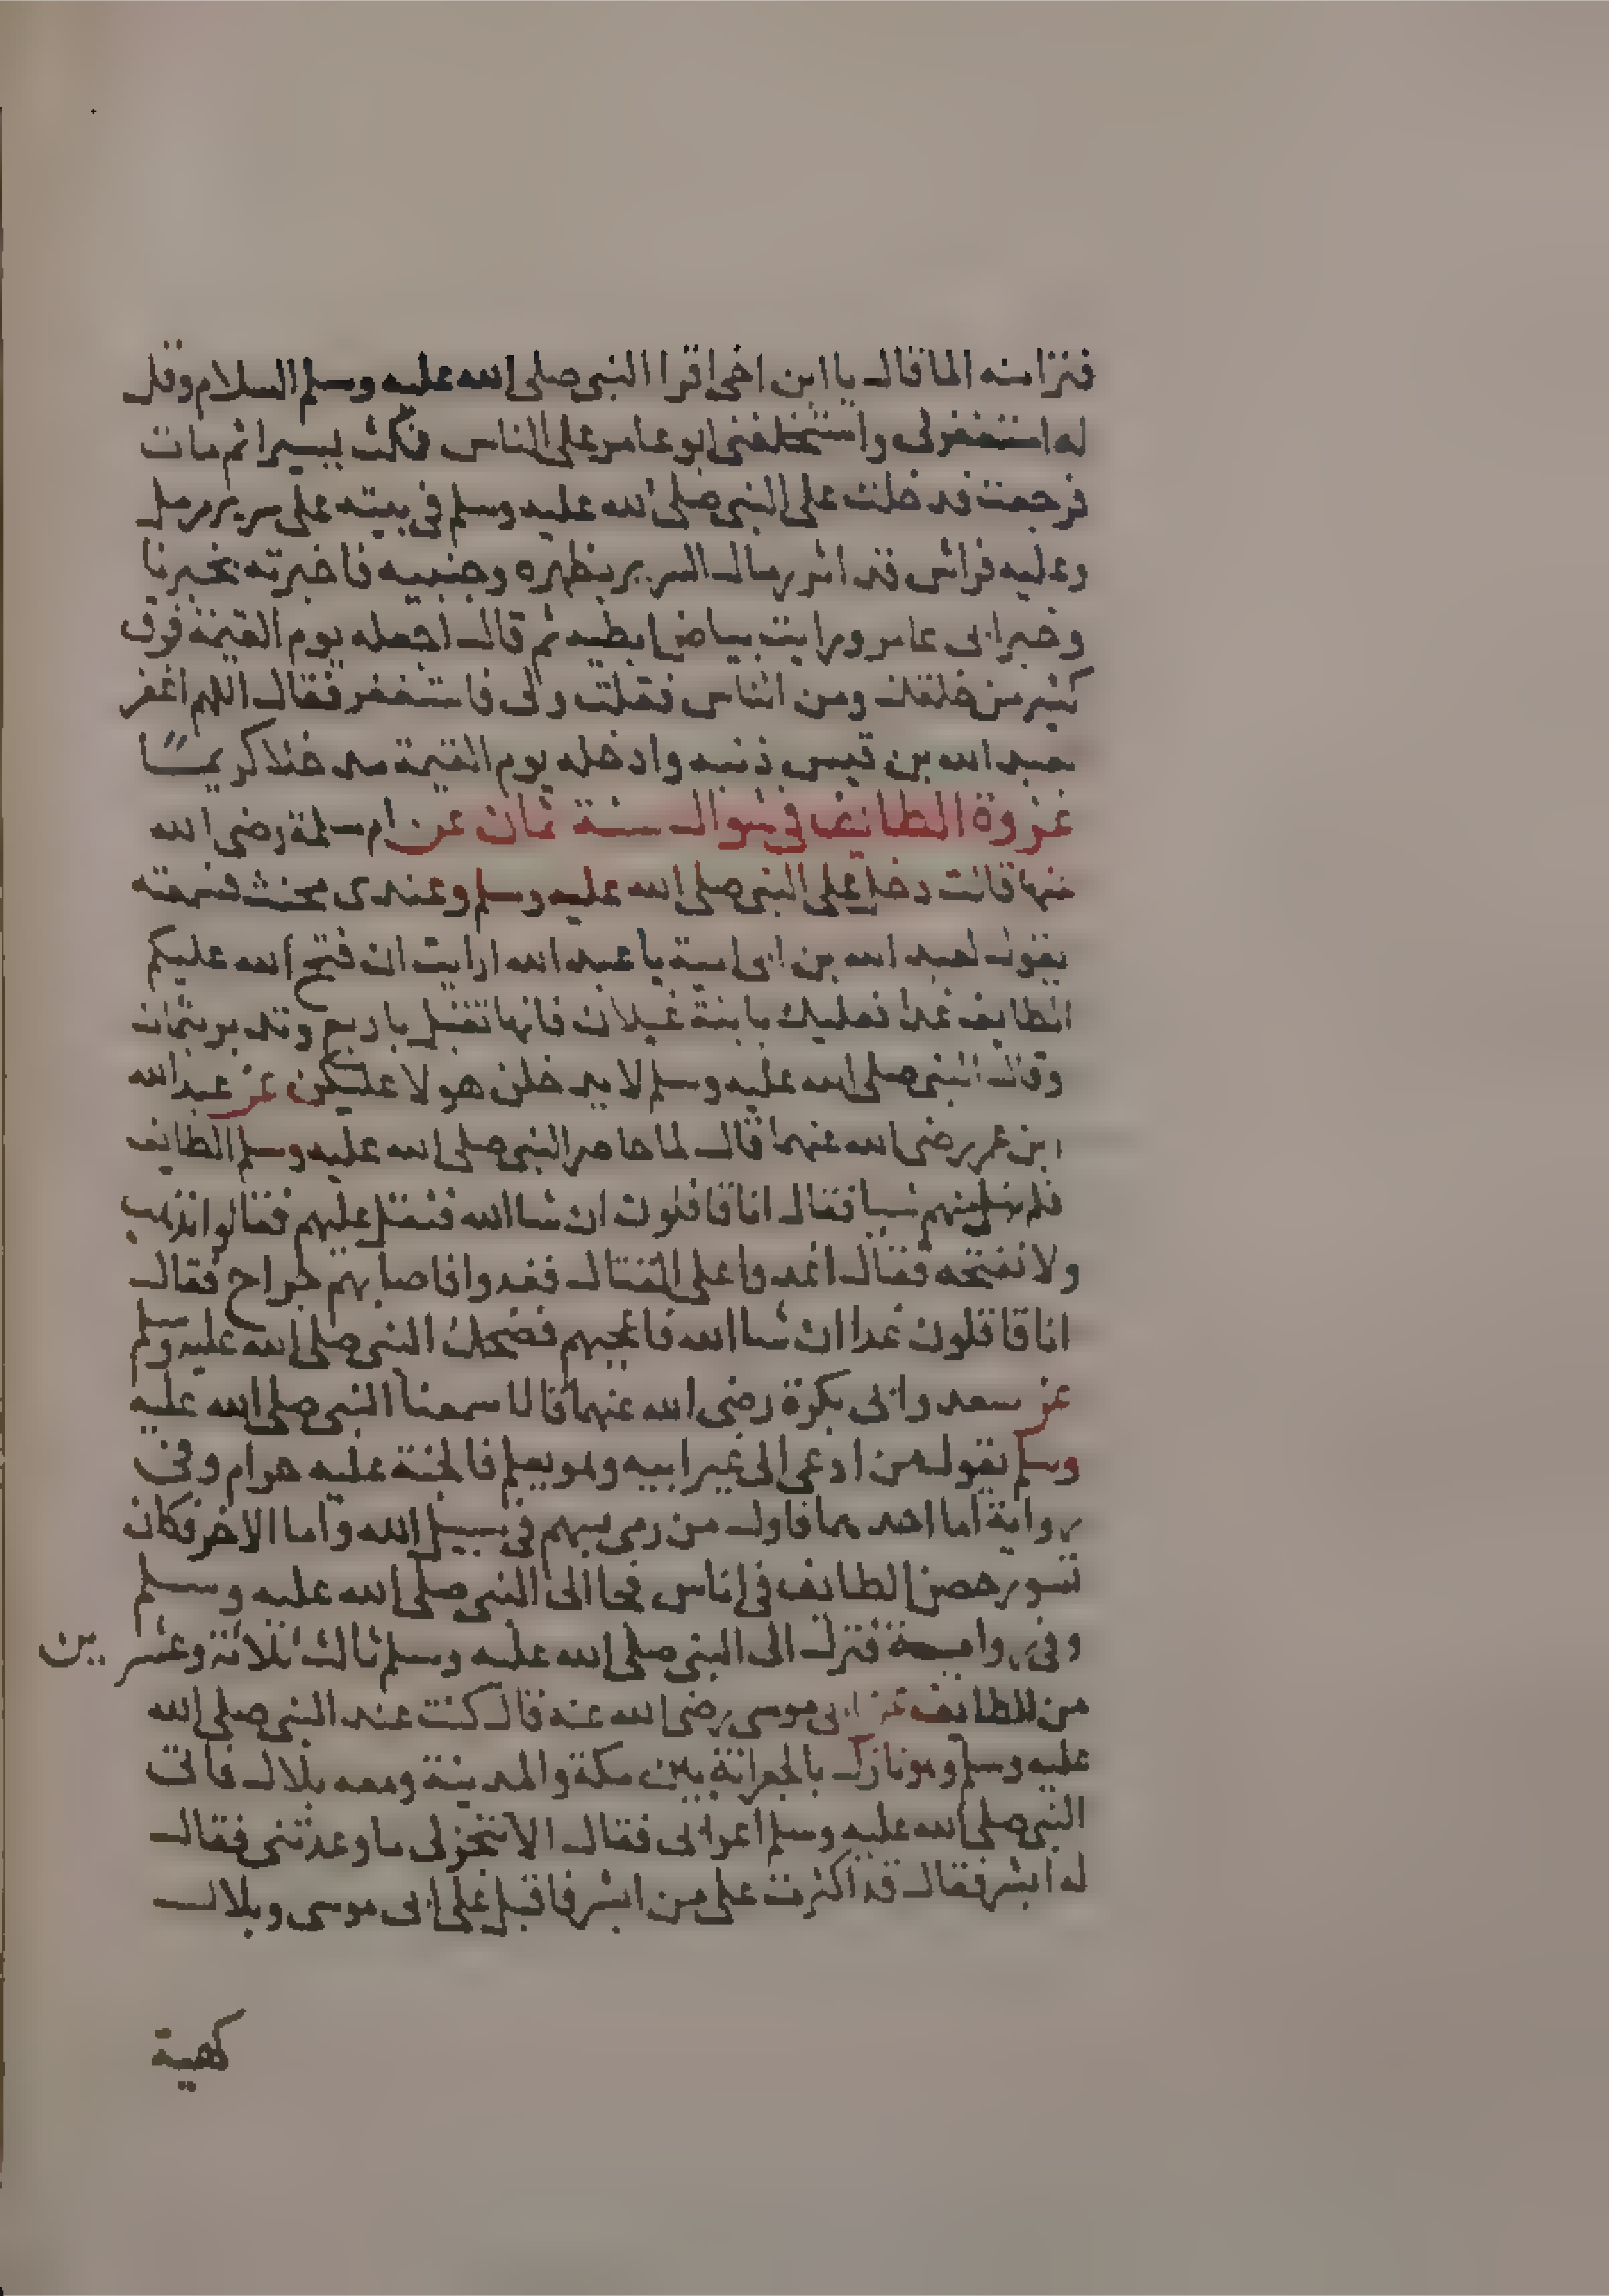 فنزا منه الما قال يا ابن اخي اقرا النبي صلى الله عليه وسلم السلام وقل
له استغفرلى واستخلفنى ابو عامر على الناس فمكث يسيرا ثم مات
فرجعت فدخلت على النبي صلى الله عليه وسلم في بيته على سرير مرمل
وعليه فراش قد اثر رمال السرير بظهره وجنبيه فاخبرته بخبرنا
وخبر ابى عامر ورايت بياض ابطيه ثم قال اجعله يوم القيمة فوق
كثير من خلقك ومن الناس فقلت ولى فاستغفر فقال اللهم اغفر
لعبد الله بن قيس ذنبه وادخله يوم القيمة مدخلا كريما
غزوة الطايف في شوال سنة ثمان عن ام سلمة رضى الله
عنها قالت دخل على النبي صلى الله عليه وسلم وعندى مخنث فسمعته
يقول لعبد الله بن ابى امية يا عبد الله ارايت ان فتح الله عليكم
الطايف غدا فعليك بابنة غيلان فانها تقبل باربع وتدبر بثمان
وقال النبي صلى الله عليه وسلم لا يدخلن هولا عليكن عن عبد الله
ابن عمر رضى الله عنهما قال لما حاصر النبي صلى الله عليه وسلم الطايف
فلم ينل منهم شيا فقال انا قافلون ان شا الله فثقل عليهم فقالوا نذهب
ولا نفتحه فقال اغدوا على القتال فغدوا فاصابهم جراح فقال
انا قافلون غدا ان شا الله فاعجبهم فضحك النبي صلى الله عليه وسلم
عن سعد وابى بكرة رضى الله عنهما قالا سمعنا النبي صلى الله عليه
وسلم يقول من ادعى الى غير ابيه وهو يعلم فالجنة عليه حرام وفى
رواية اما احدهما فاول من رمى بسهم في سبيل الله واما الاخر فكان
تسور حصن الطايف في اناس فجا الى النبي صلى الله عليه وسلم
وفى رواية فنزل الى النبي صلى الله عليه وسلم ثالث ثلاثة وعشرين
من الطايف عن ابى موسى رضى الله عنه قال كنت عند النبي صلى الله
عليه وسلم وهو نازل بالجعرانة بين مكة والمدينة ومعه بلال فاتى
النبي صلى الله عليه وسلم اعرابى فقال الا تنجز لى ما وعدتنى فقال
له ابشر فقال قد اكثرت على من ابشر فاقبل على ابى موسى وبلال
كهية